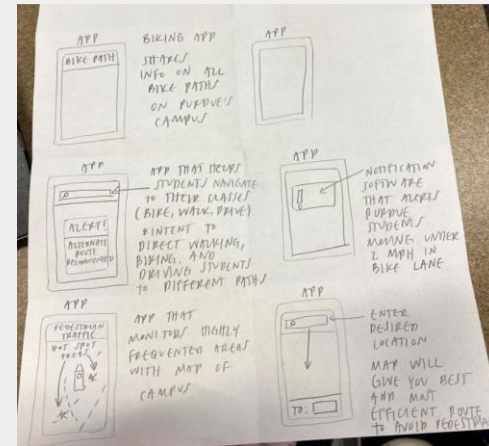 APP
BIKE PATH
BIKING APP
SHARES
INFO ON ALL
BIKE PATHS
ON PURDUE'S
CAMPUS
APP
APP
ALERT!
ALTERNATE
ROUTE
RECOMMENDED
APP THAT HELPS
STUDENTS NAVIGATE
TO THEIR CLASSES
(BIKE, WALK, DRIVE)
*INTENT TO
DIRECT WALKING,
BIKING, AND
DRIVING STUDENTS
TO DIFFERENT PATHS
APP
NOTIFICATION
SOFTWARE
THAT ALERTS
PURDUE
STUDENTS
MOVING UNDER
2 MPH IN
BIKE LANE
APP
PEDESTRIAN
TRAFFIC
HOT SPOT
AREAS
APP THAT
MONITORS HIGHLY
FREQUENTED AREAS
WITH MAP OF
CAMPUS
APP
TO:
ENTER
DESIRED
LOCATION
MAP WILL
GIVE YOU BEST
AND MOST
EFFICIENT ROUTE
TO AVOID